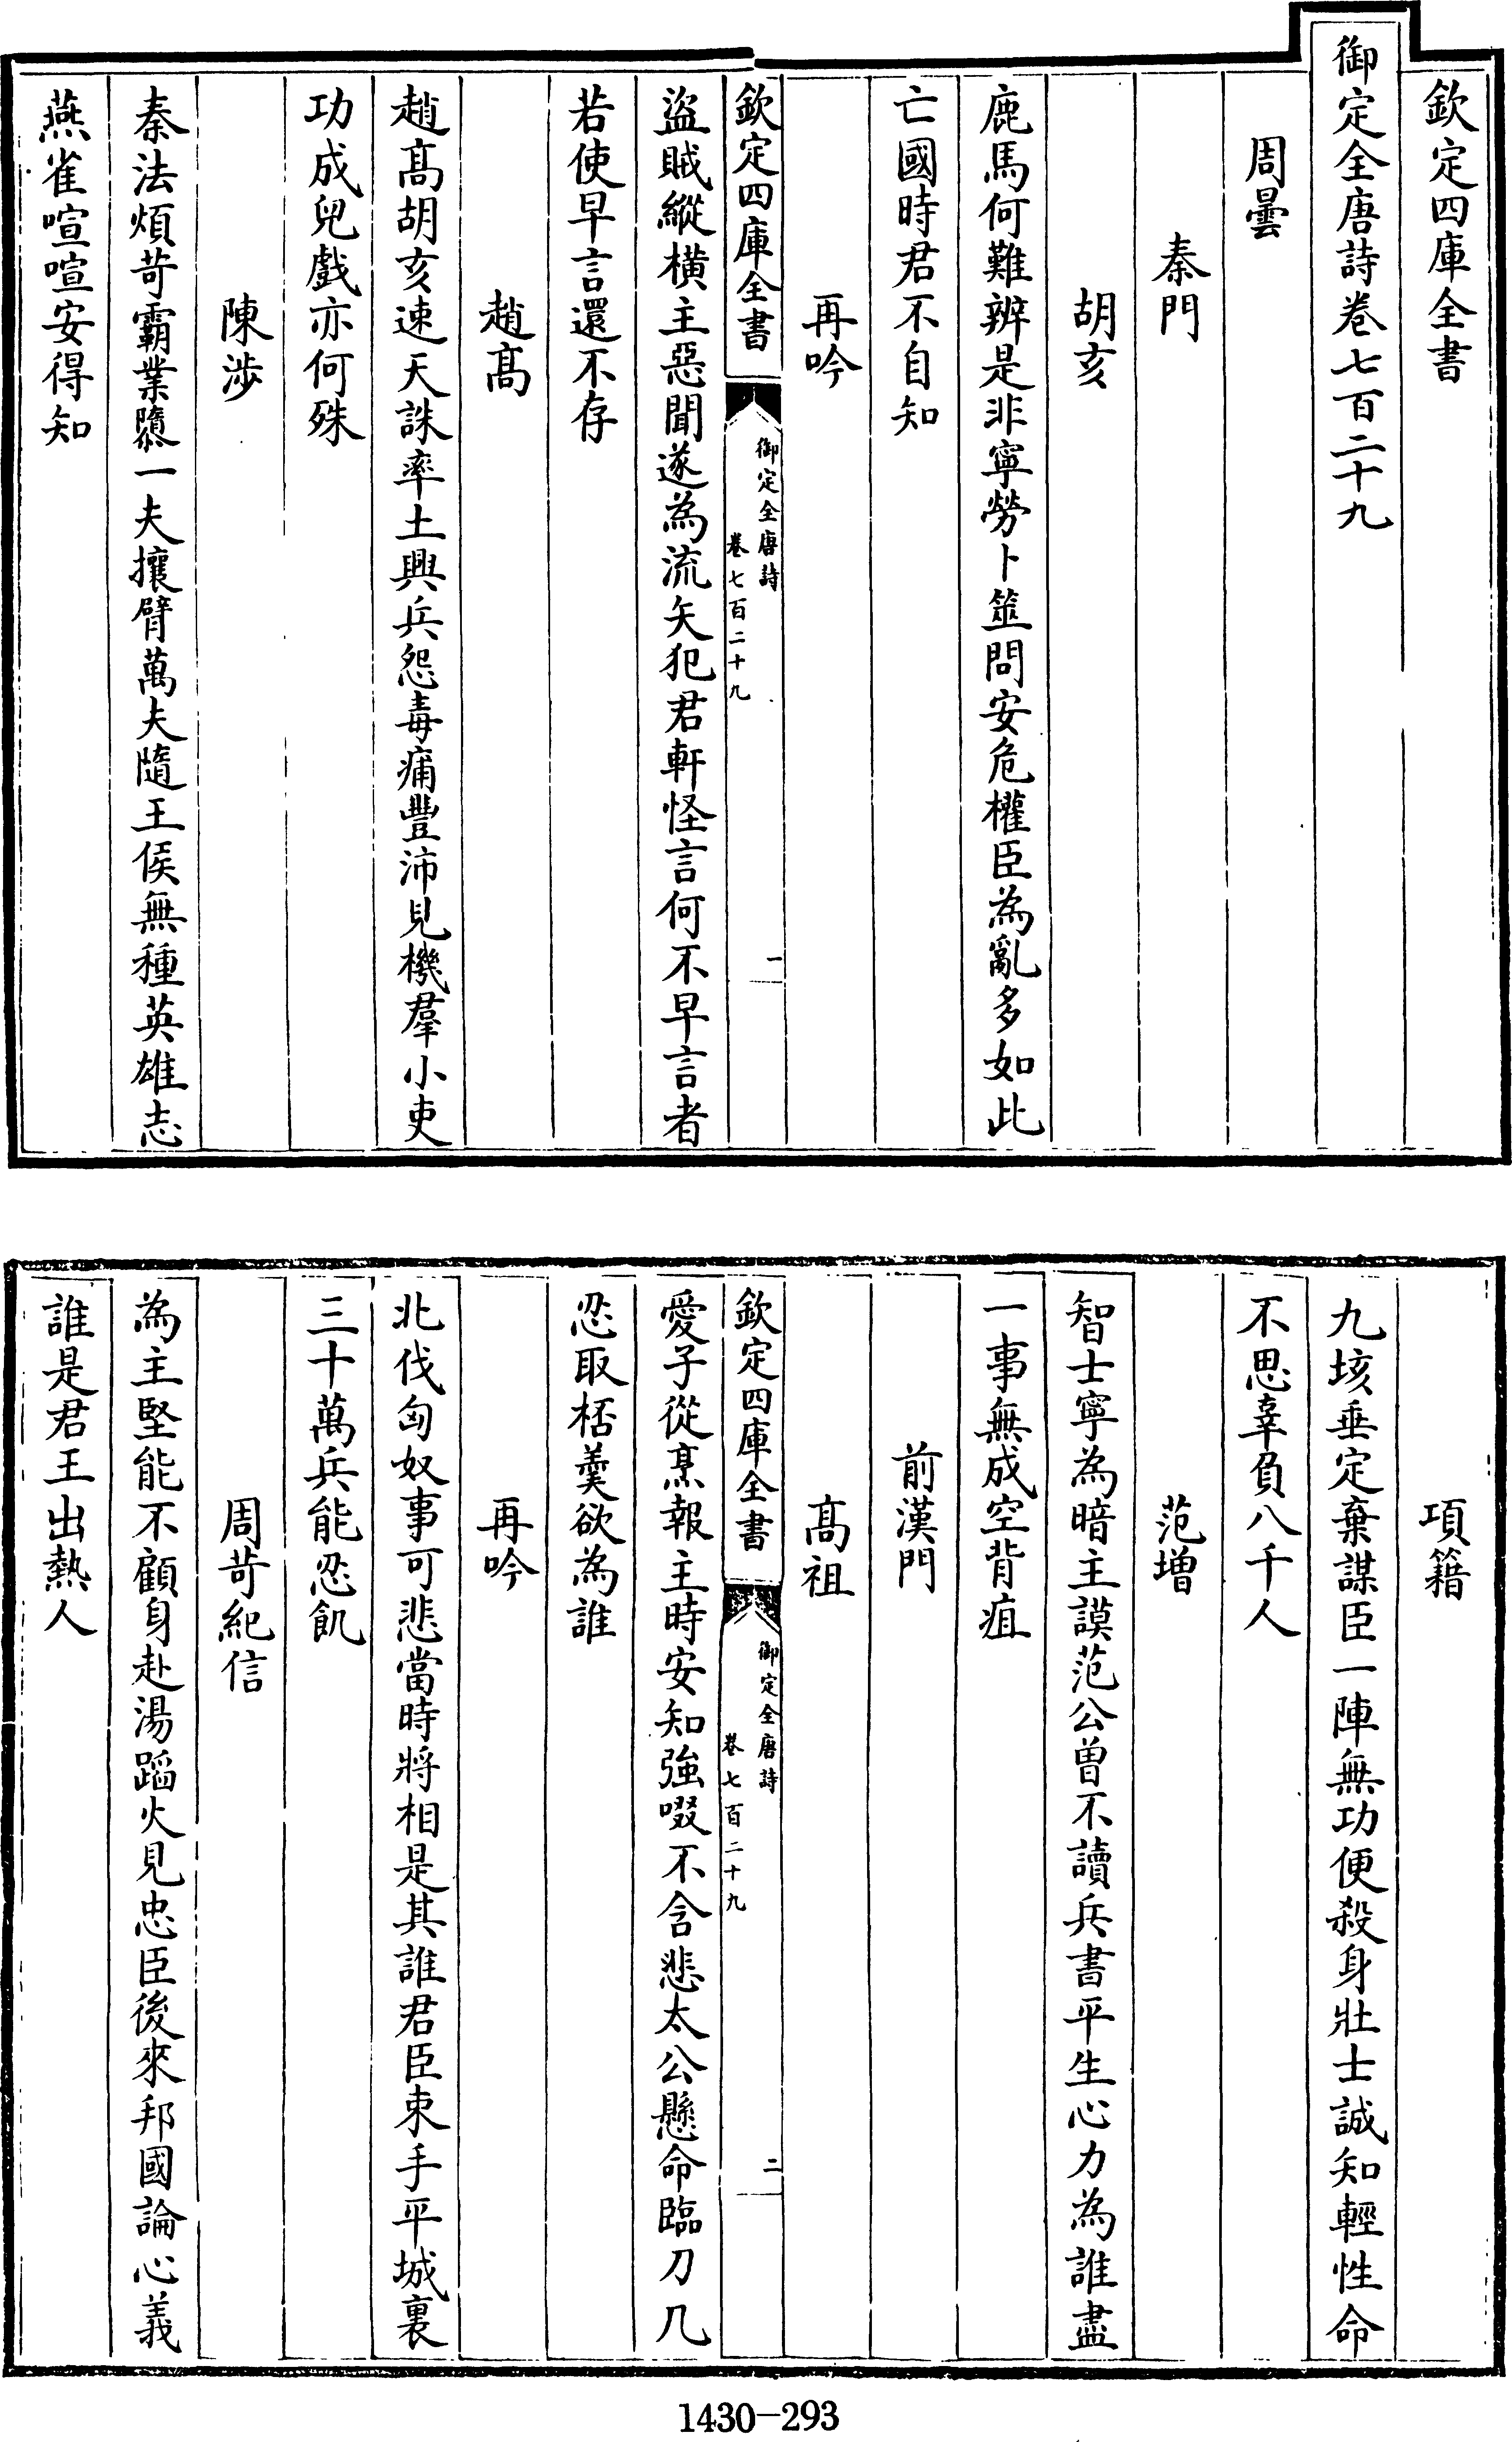 欽定四庫全書
御定全唐詩卷七百二十九
周曇
秦門
胡亥
鹿馬何難辨是非寧勞卜筮問安危權臣為亂多如此
亡國時君不自知
再吟
欽定四庫全書
御定全唐詩
卷七百二十九
一
盜賊縱橫主惡聞遂為流矢犯君軒怪言何不早言者
若使早言還不存
趙髙
趙髙胡亥速天誅率土興兵怨毒痡豐沛見機羣小吏
功成兒戲亦何殊
陳涉
秦法煩苛霸業隳一夫攘臂萬夫隨王侯無種英雄志
燕雀喧喧安得知
項籍
九垓垂定棄謀臣一陣無功便殺身壯士誠知輕性命
不思辜負八千人
范增
智士寧為暗主謨范公曽不讀兵書平生心力為誰盡
一事無成空背疽
前漢門
髙祖
欽定四庫全書
御定全唐詩
卷七百二十九
二
愛子從烹報主時安知強啜不含悲太公懸命臨刀几
忍取桮羹欲為誰
再吟
北伐匈奴事可悲當時將相是其誰君臣束手平城裏
三十萬兵能忍飢
周苛紀信
為主堅能不顧身赴湯蹈火見忠臣後來邦國論心義
誰是君王出熱人
1430-293